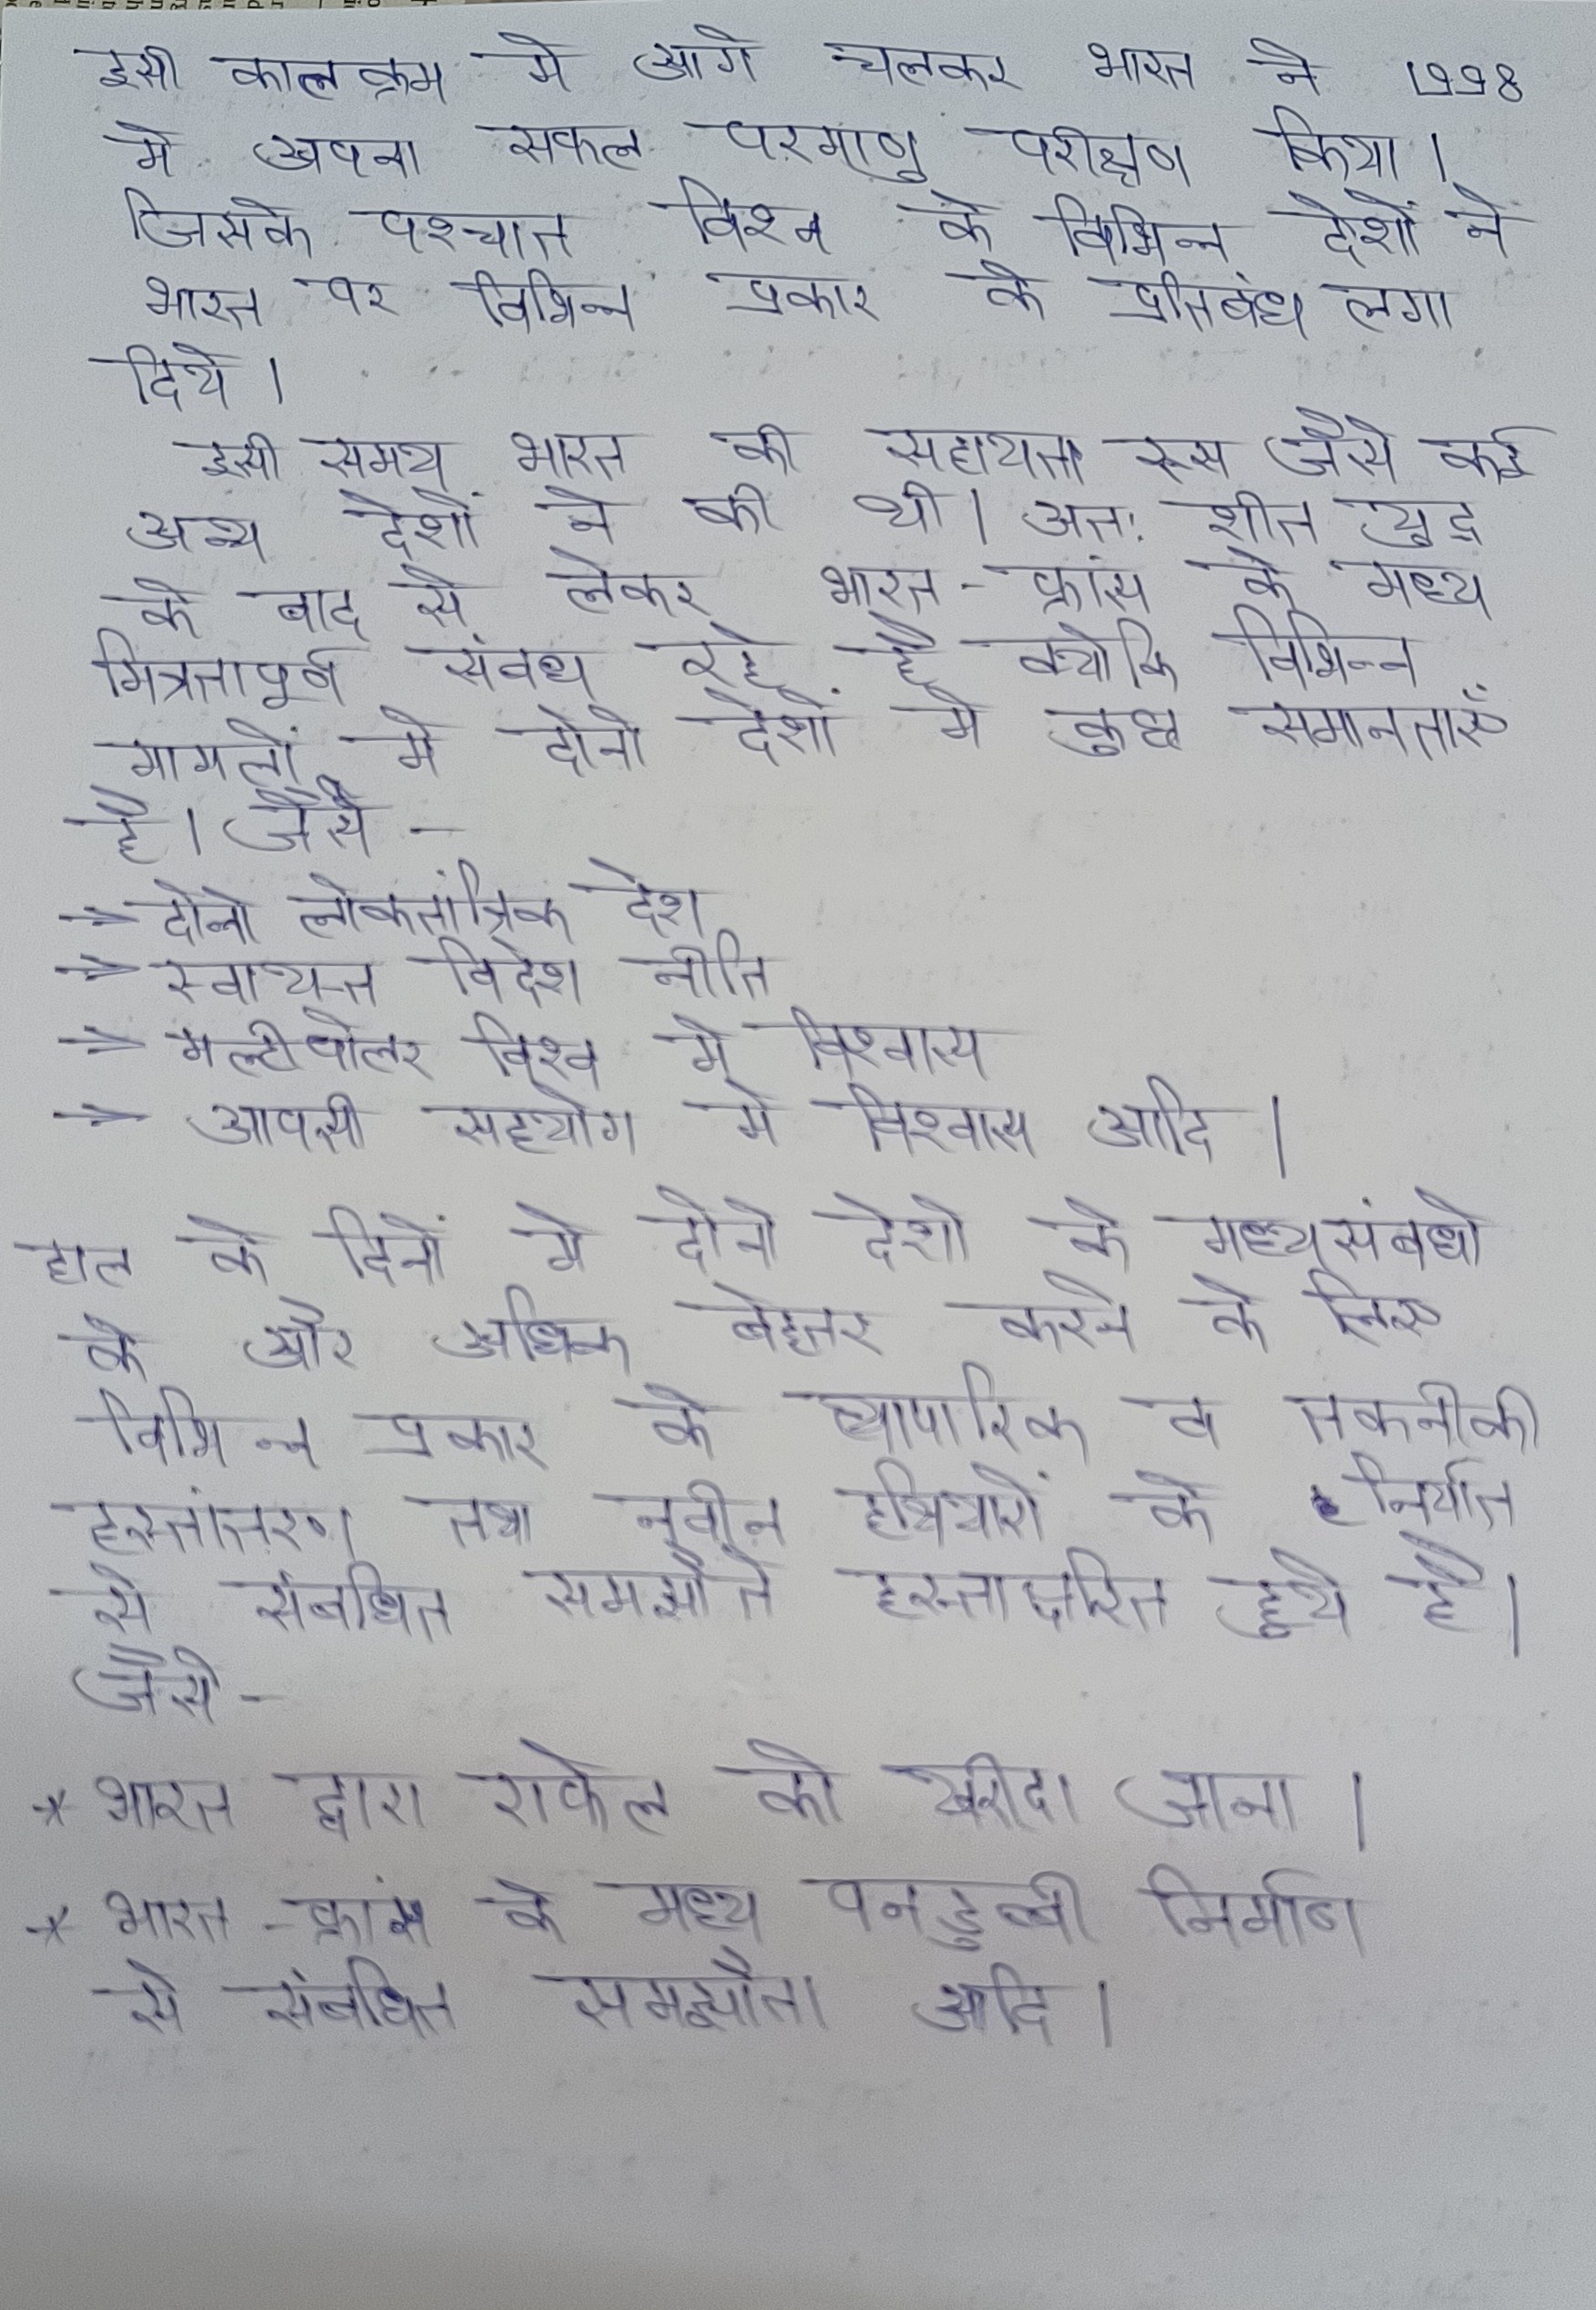 इसी कालक्रम मे आगे चलकर भारत ने 1998
मे अपना सफल परमाणु परीक्षण किया।
जिसके पश्चात विश्व के विभिन्न देशों ने
भारत पर विभिन्न प्रकार के प्रतिबंध लगा
दिये।
इसी समय भारत की सहायता रूस जैसे कई
अन्य देशों ने की थी। अतः शीत युद्ध
के बाद से लेकर भारत-फ्रांस के मध्य
मित्रतापूर्ण संबंध रहे है क्योकि विभिन्न
मामलों मे दोनो देशों मे कुछ समानताएँ
है। जैसे -
→ दोनो लोकतांत्रिक देश
→ स्वायत्त विदेश नीति
→ मल्टीपोलर विश्व मे विश्वास
→ आपसी सहयोग मे विश्वास आदि।
हाल के दिनों मे दोनो देशो के मध्य संबधो
के और अधिक बेहतर करने के लिए
विभिन्न प्रकार के व्यापारिक व तकनीकी
हस्तांतरण तथा नवीन हथियारों के निर्यात
से संबधित समझौते हस्ताक्षरित हूये है।
जैसे -
* भारत द्वारा राफेल को खरीदा जाना।
* भारत - फ्रांस के मध्य पनडुब्बी निर्माण
से संबधित समझौता आदि।